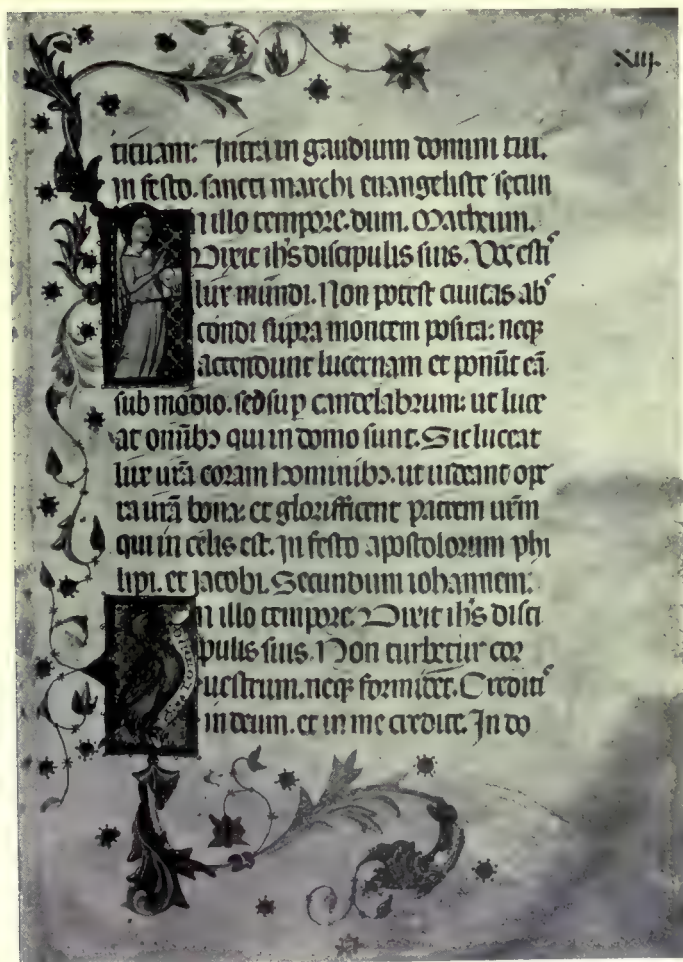 XIIJ.
ticuam: Intra in gaudium domini tui.
in festo. sancti marchi euangeliste secun
n illo tempore. dum. Matheum.
Dixit ih̄s discipulis suis. Vos esti
lux mundi. Non potest ciuitas ab
condi supra montem posita: neqꝫ
accendunt lucernam et ponūt eā
sub modio. sed suꝑ candelabrum: ut luce
at omībꝫ qui in domo sunt. Sic luceat
lux ur̄a coram hominibꝫ. ut uideant ope
ra ur̄a bona: et glorifficent patrem ur̄m
qui in celis est. in festo apostolorum phi
lipi. et jacobi. Secundum iohannem:
n illo tempore. Dixit ih̄s disci
pulis suis. Non turbetur cor
uestrum. neqꝫ formidet. Crediti
in deum. et in me credite. In do